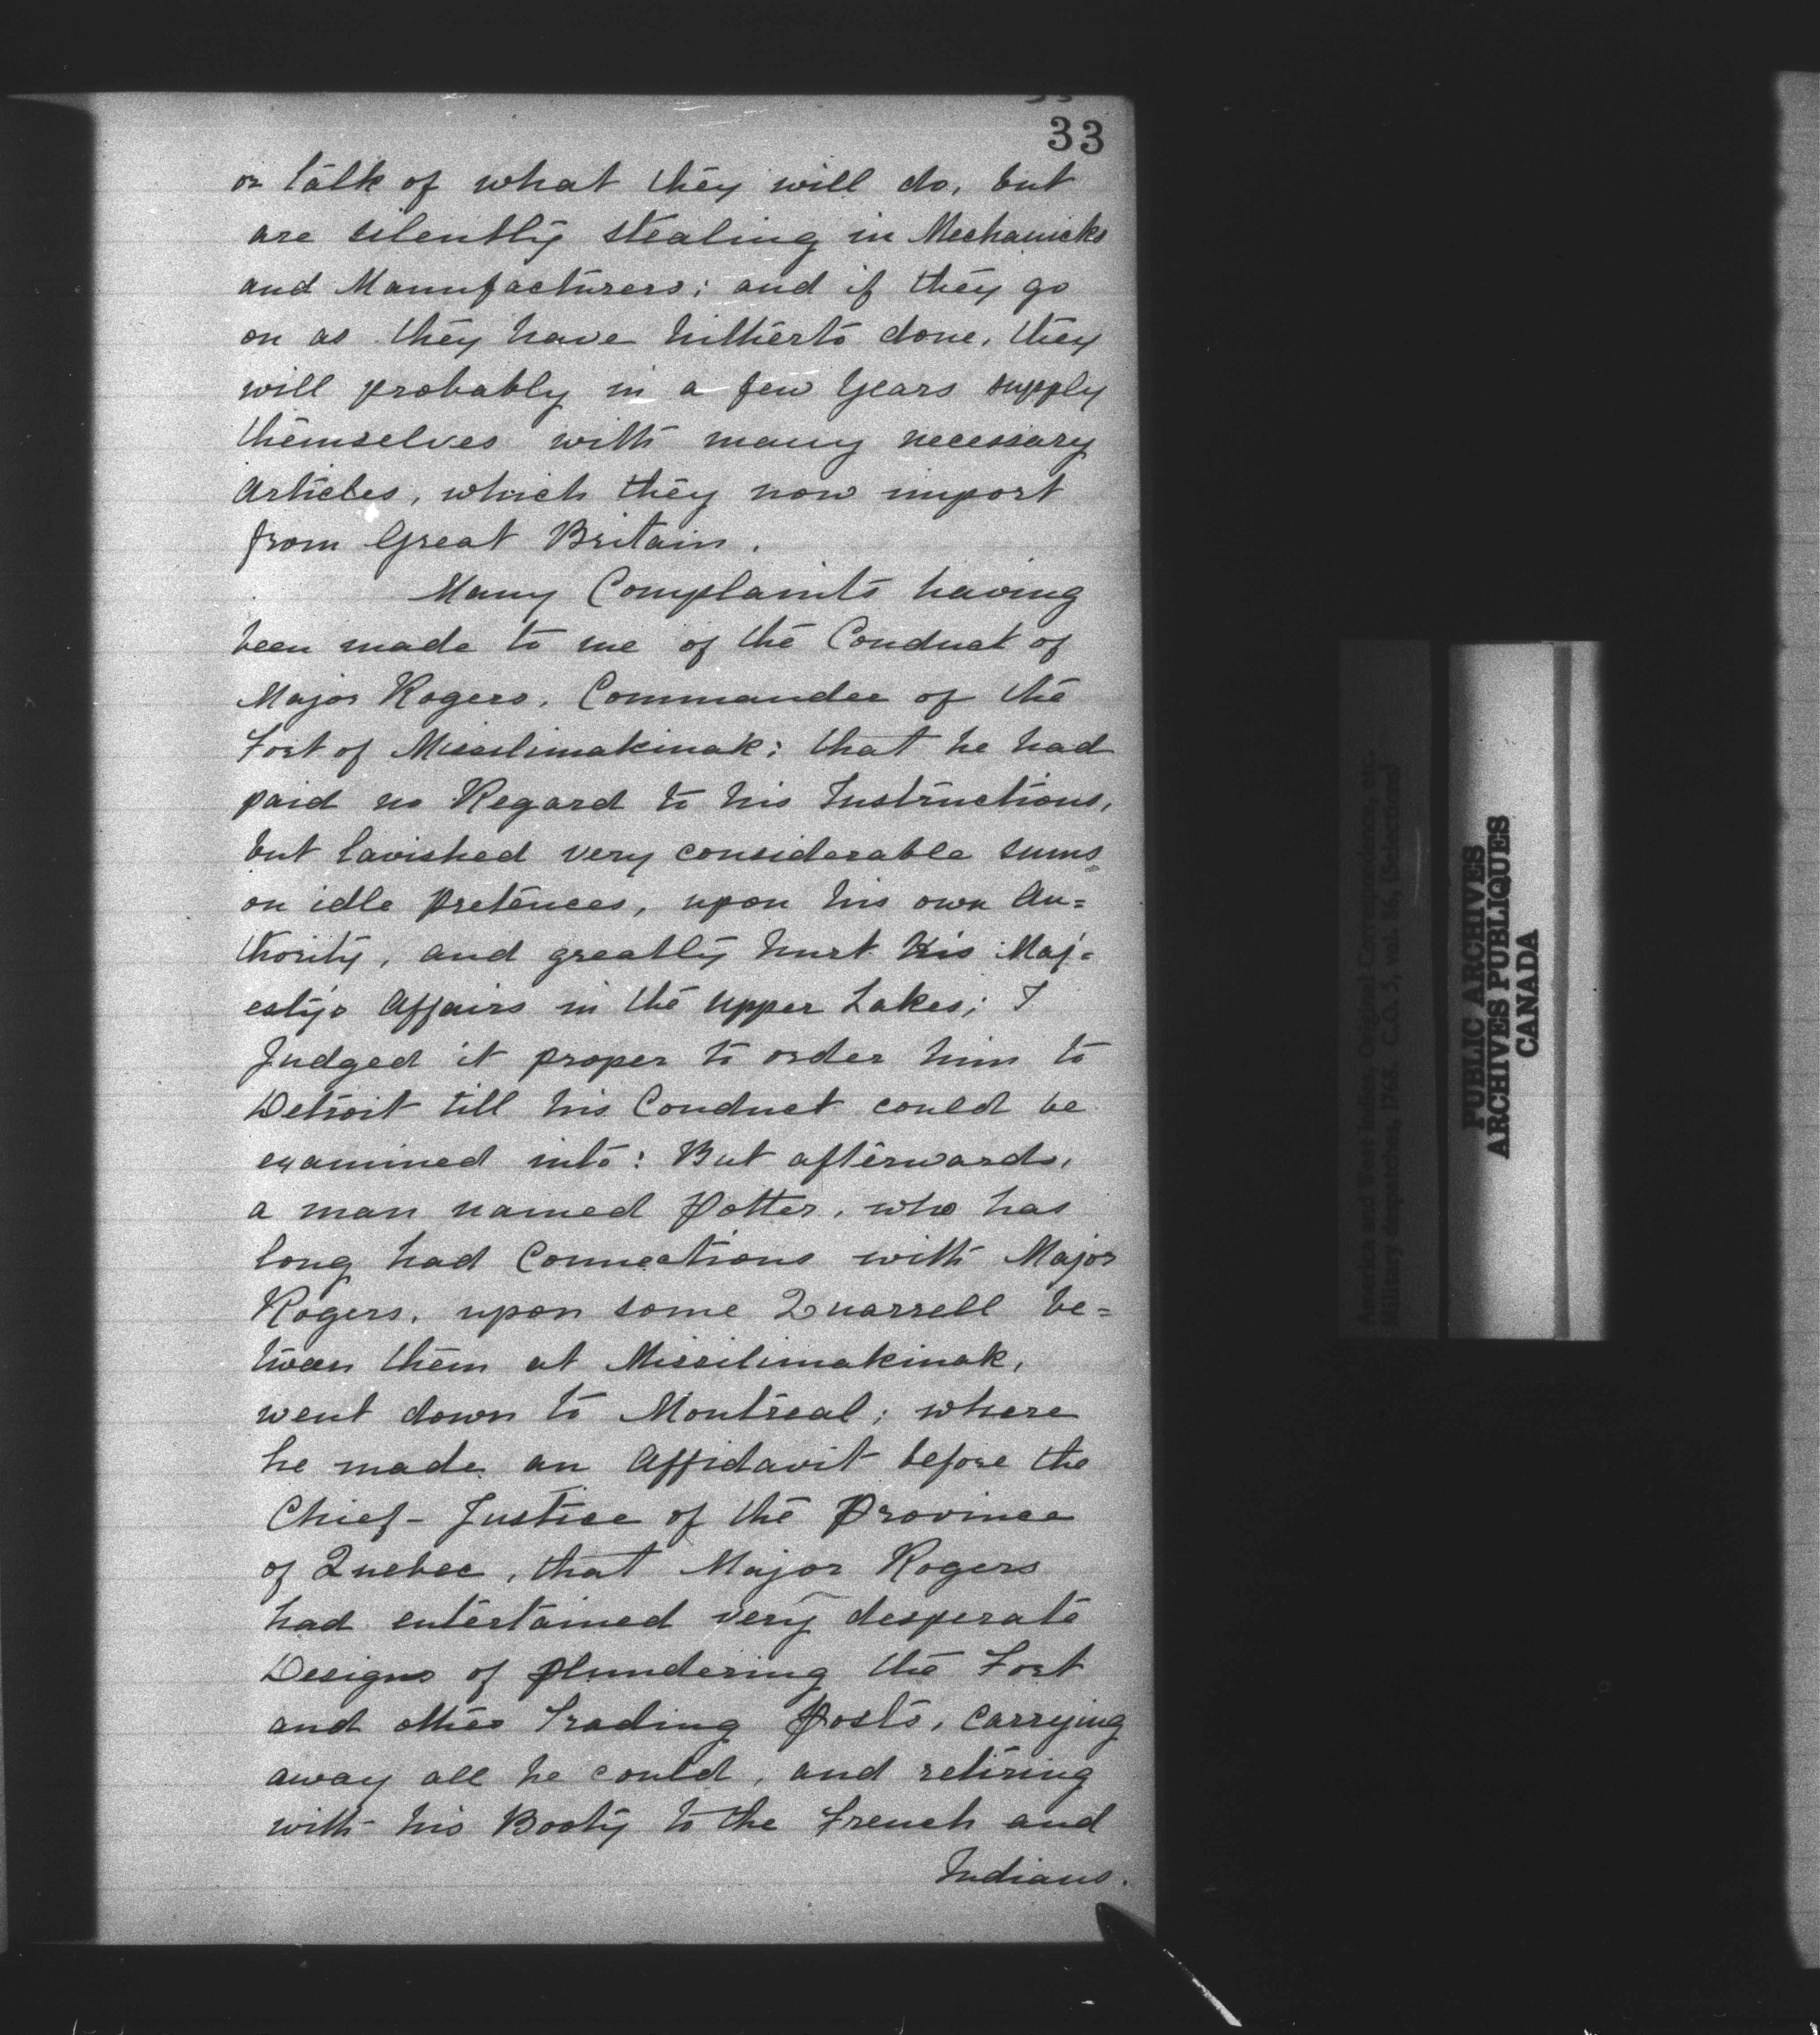 33
or talk of what they will do, but
are silently stealing in Mechanicks
and Manufacturers; and if they go
on as they have hitherto done, they
will probably in a few Years supply
themselves with many necessary
Articles, which they now import
from Great Britain.
Many Complaints having
been made to me of the Conduct of
Major Rogers, Commander of the
Fort of Missilimakinak; that he had
paid no Regard to his Instructions,
but lavished very considerable sums
on idle pretences, upon his own Au=
thority, and greatly hurt His Maj=
esty's Affairs in the upper Lakes; I
Judged it proper to order him to
Detroit till his Conduct could be
examined into: But afterwards,
a man named Potter, who has
long had Connections with Major
Rogers, upon some Quarrell be=
tween them at Missilimakinak,
went down to Montreal; where
he made an Affidavit before the
Chief-Justice of the Province
of Quebec, that Major Rogers
had entertained very desperate
Designs of plundering the Fort
and other Trading Posts, carrying
away all he could, and retiring
with his Booty to the French and
Indians.
America and West Indies, Original Correspondence, etc.
Military despatches, 1768. C.O. 5, vol. 86, (Selection)
PUBLIC ARCHIVES
ARCHIVES PUBLIQUES
CANADA